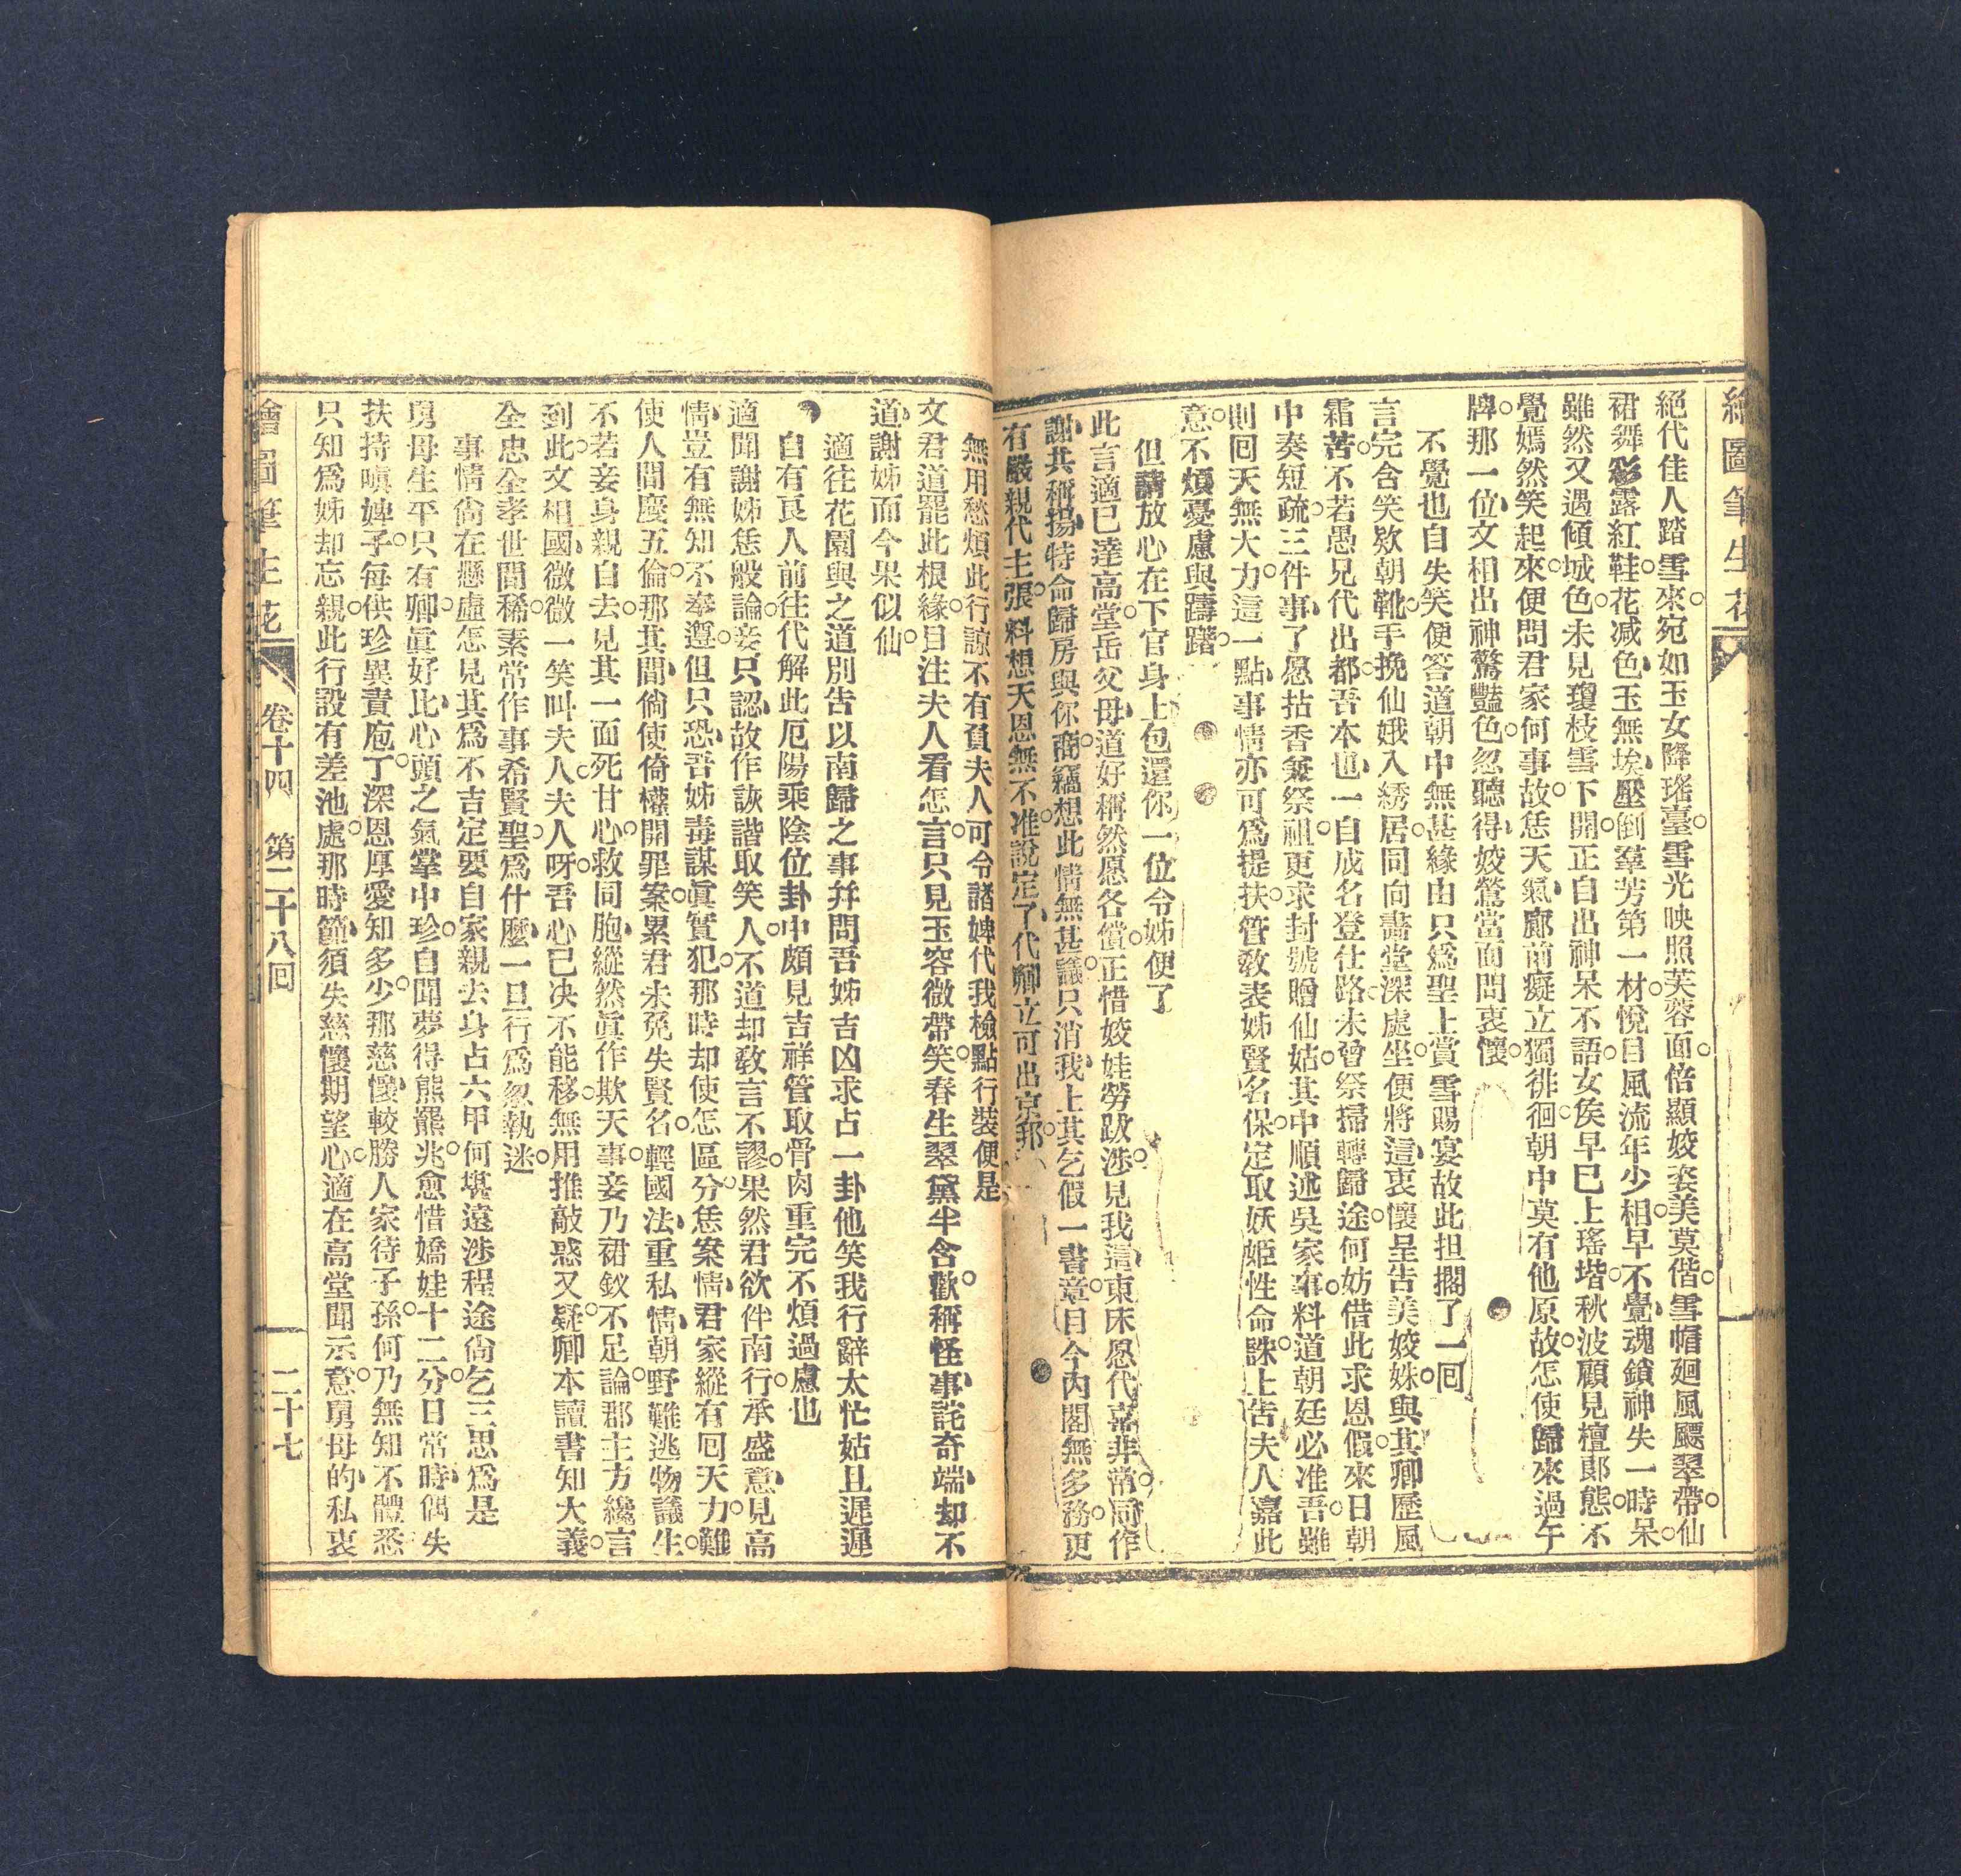 繪圖筆生花
絕代佳人踏雪來宛如玉女降瑤臺雪光映照芙蓉面倍顯姣姿美莫偕雪帽廻風飂翠帶仙
裙舞彩露紅鞋花減色玉無埃壓倒羣芳第一材悅目風流年少相早不覺魂鎖神失一時呆
雖然又遇傾城色未見瓊枝雪下開正自出神呆不語女侯早已上瑤堦秋波顧見檀郞態不
覺嫣然笑起來便問君家何事故恁天氣廊前癡立獨徘徊朝中莫有他原故怎使歸來過午
牌那一位文相出神驚豔色忽聽得姣鶯當面問衷懷
不覺也自失笑便答道朝中無甚緣由只爲聖上賞雪賜宴故此担擱了一回
言完含笑欵朝靴手挽仙娥入綉居同向畵堂深處坐便將這衷懷呈告美姣姝與其卿歷風
霜苦不若愚兄代出都吾本也一自成名登仕路未曾祭掃轉歸途何妨借此求恩假來日朝
中奏短疏三件事了愿拈香兼祭祖更求封號贈仙姑其中順述吳家事料道朝廷必准吾雖
則回天無大力這一點事情亦可爲提扶管敎表姊賢名保定取妖姬性命誅上告夫人嘉此
意不煩憂慮與躊躇
但請放心在下官身上包還你一位令姊便了
此言適已達高堂岳父母道好稱然愿各償正惜姣娃勞跋涉見我這東床愿代嘉非常同作
謝共稱揚特命歸房與你商竊想此情無甚議只消我上其乞假一書章目今內閣無多務更
有嚴親代主張料想天恩無不准說定了代卿立可出京邦
無用愁煩此行諒不有負夫人可令諸婢代我檢點行裝便是
文君道罷此根緣目注夫人看怎言只見玉容微帶笑春生翠黛半含歡稱怪事詫奇端却不
道謝姊而今果似仙
適往花園與之道別告以南歸之事幷問吾姊吉凶求占一卦他笑我行辭太忙姑且遲遲
自有良人前往代解此厄陽乘陰位卦中頗見吉祥管取骨肉重完不煩過慮也
適聞謝姊恁般論妾只認故作詼諧取笑人不道却敎言不謬果然君欲伴南行承盛意見高
情豈有無知不奉遵但只恐吾姊毒謀眞實犯那時却使怎區分恁案情君家縱有回天力難
使人間廢五倫那其間倘使倚權開罪案累君未免失賢名輕國法重私情朝野難逃物議生
不若妾身親自去見其一面死甘心救同胞縱然眞作欺天事妾乃裙釵不足論郡主方纔言
到此文相國微微一笑叫夫人夫人呀吾心已决不能移無用推敲惑又疑卿本讀書知大義
全忠全孝世間稀素常作事希賢聖爲什麼一旦行爲忽執迷
事情尙在懸虛怎見其爲不吉定要自家親去身占六甲何堪遠涉程途尙乞三思爲是
舅母生平只有卿眞好比心頭之氣掌中珍自聞夢得熊羆兆愈惜嬌娃十二分日常時偶失
扶持嗔婢子每供珍異責庖丁深恩厚愛知多少那慈懷較勝人家待子孫何乃無知不體悉
只知爲姊却忘親此行設有差池處那時節須失慈懷期望心適在高堂聞示意舅母的私衷
繪圖筆生花 卷十四 第二十八回 二十七